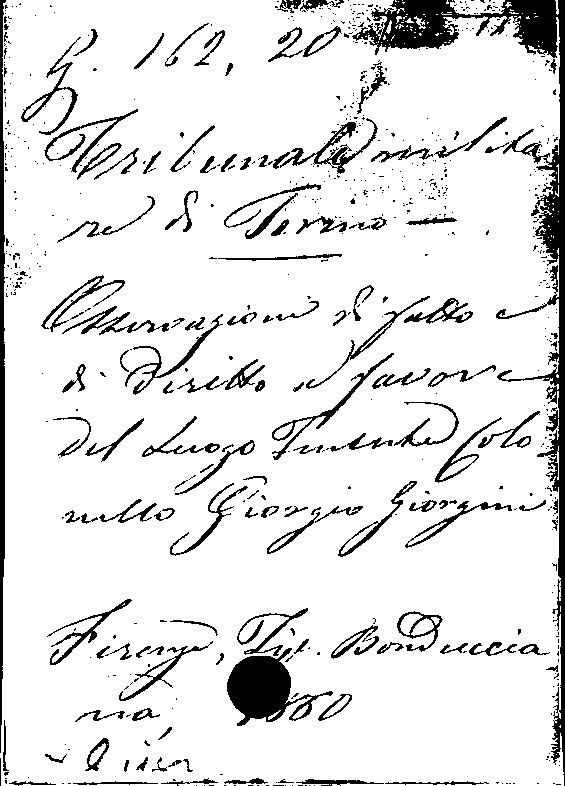 G. 162, 20
Tribunale milita
re di Torino —
Osservazioni di fatto e
di diritto a favore
del Luogo Tenente Colo-
nello Giorgio Giorgini
Firenze, Tip. Bonduccia
na, 1860